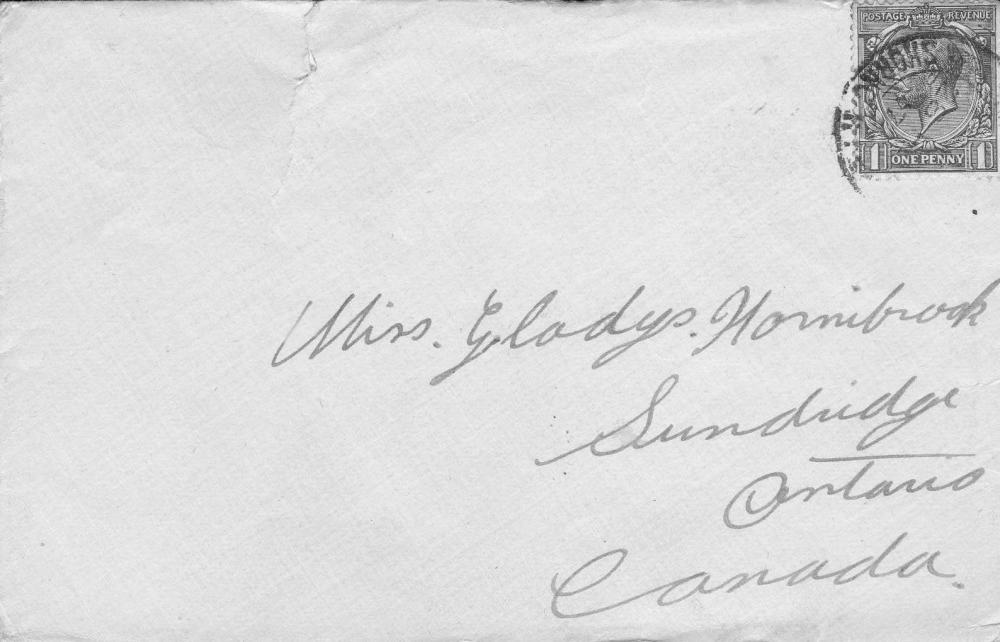 POSTAGE REVENUE
1 ONE PENNY 1
Miss. Gladys. Hornibrook
Sundridge
Ontario
Canada.